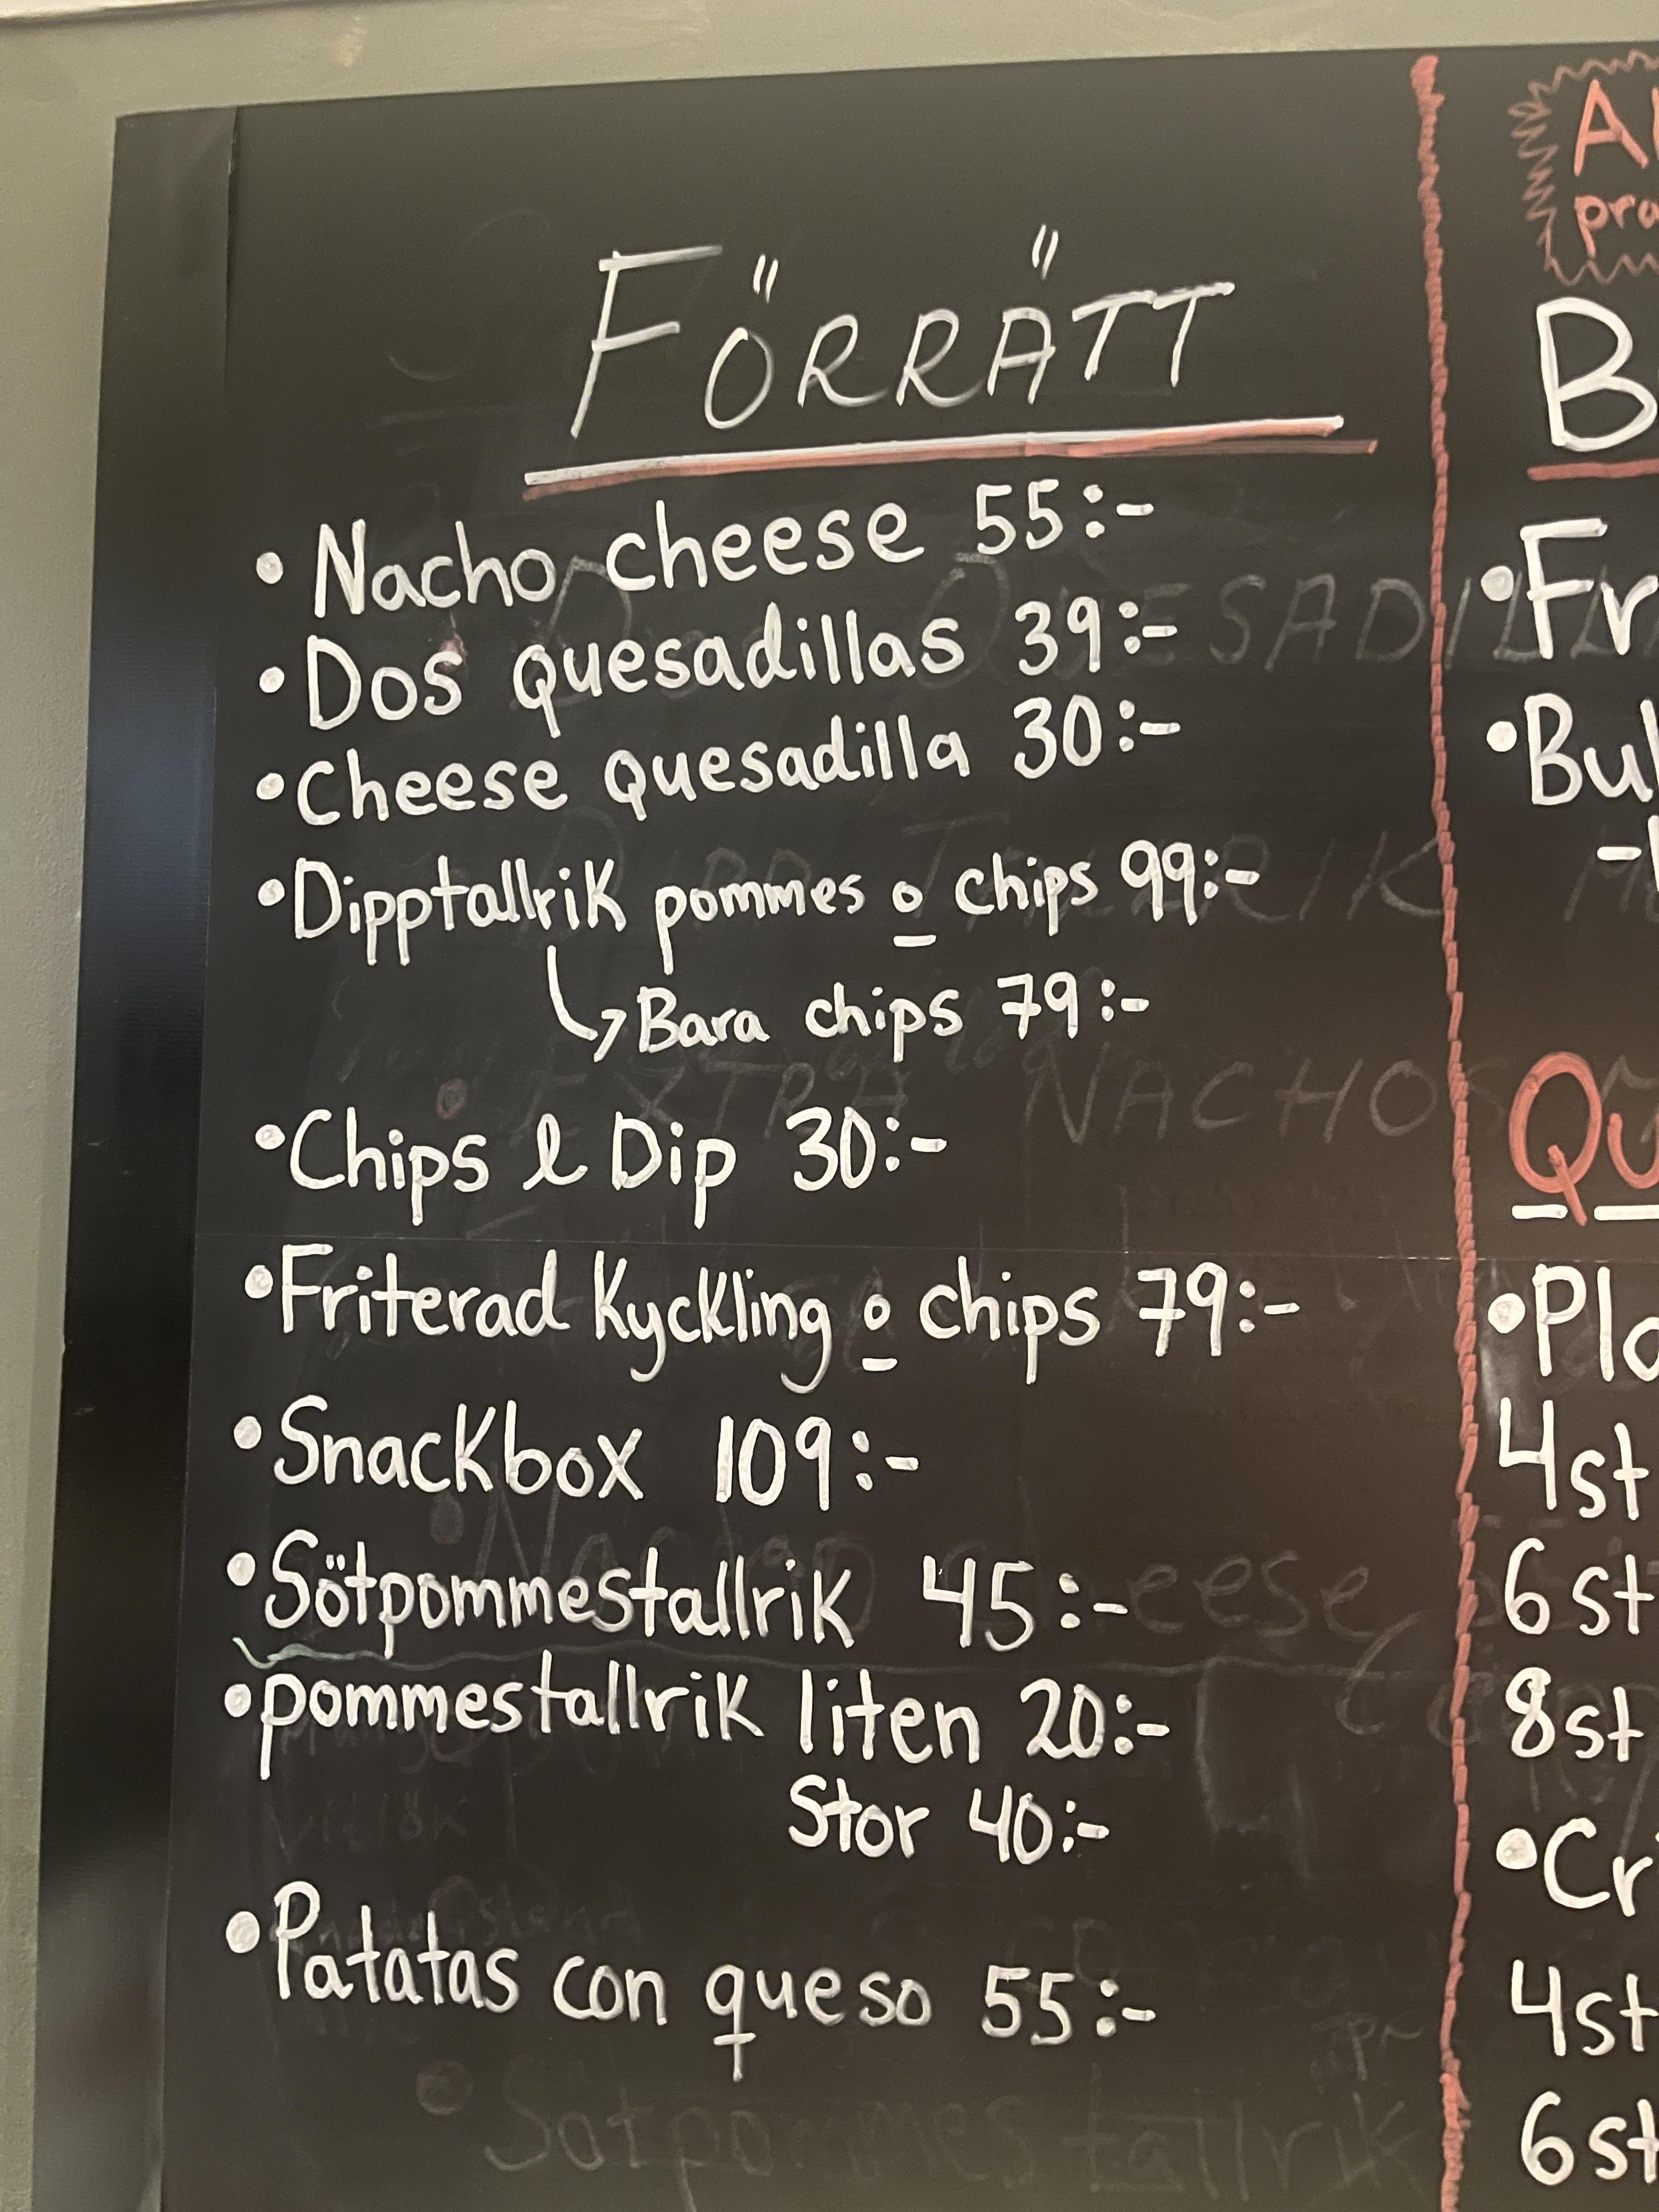 FÖRRÄTT
• Nacho cheese 55:-
• Dos quesadillas 39:-
• Cheese quesadilla 30:-
• Dipptallrik pommes o chips 99:-
↳ Bara chips 79:-
• Chips & Dip 30:-
• Friterad kyckling o chips 79:-
• Snackbox 109:-
• Sötpommestallrik 45:-
• pommestallrik liten 20:-
Stor 40:-
• Patatas con queso 55:-
4st
6st
8st
4st
6st